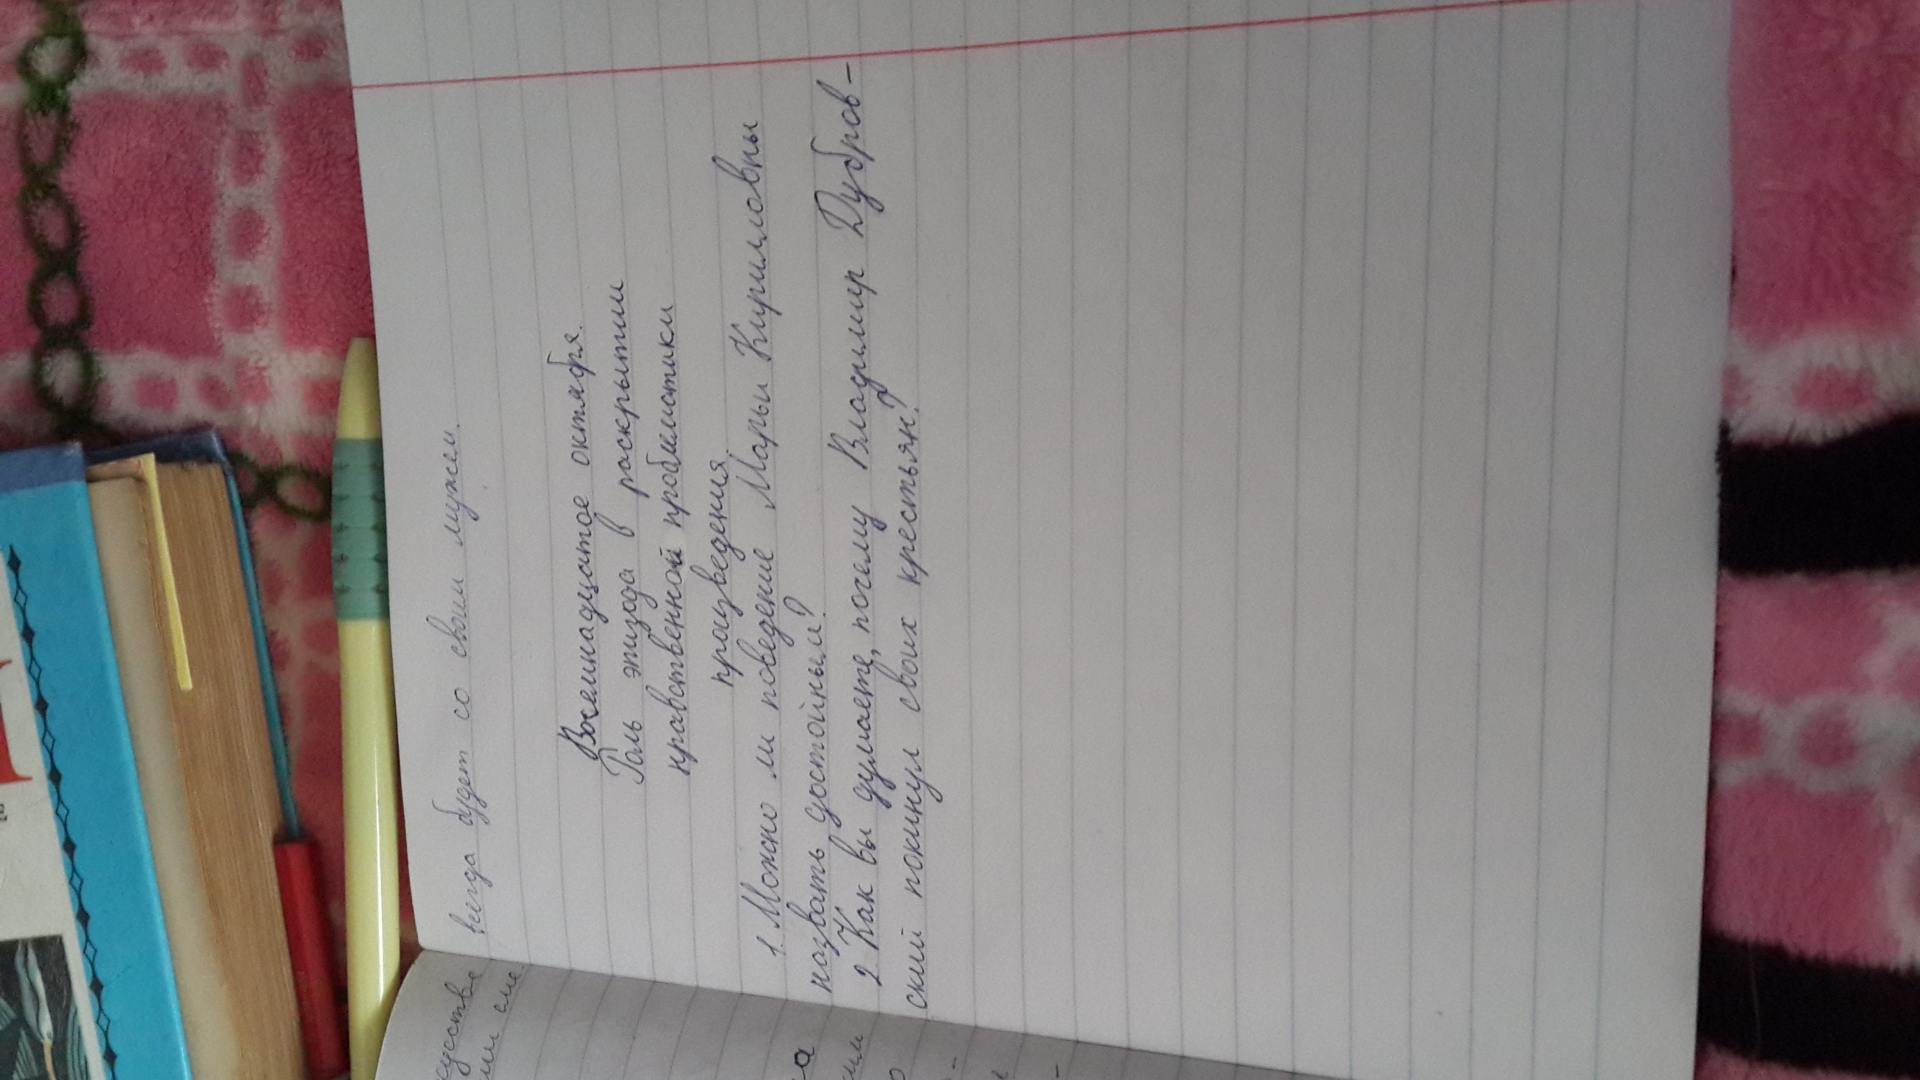 всегда будет со своим мужем.
Восемнадцатое октября.
Роль эпизода в раскрытии
нравственной проблематики
произведения.
1. Можно ли поведение Марьи Кирилловны
назвать достойным?
2 Как вы думаете, почему Владимир Дубров-
ский покинул своих крестьян?